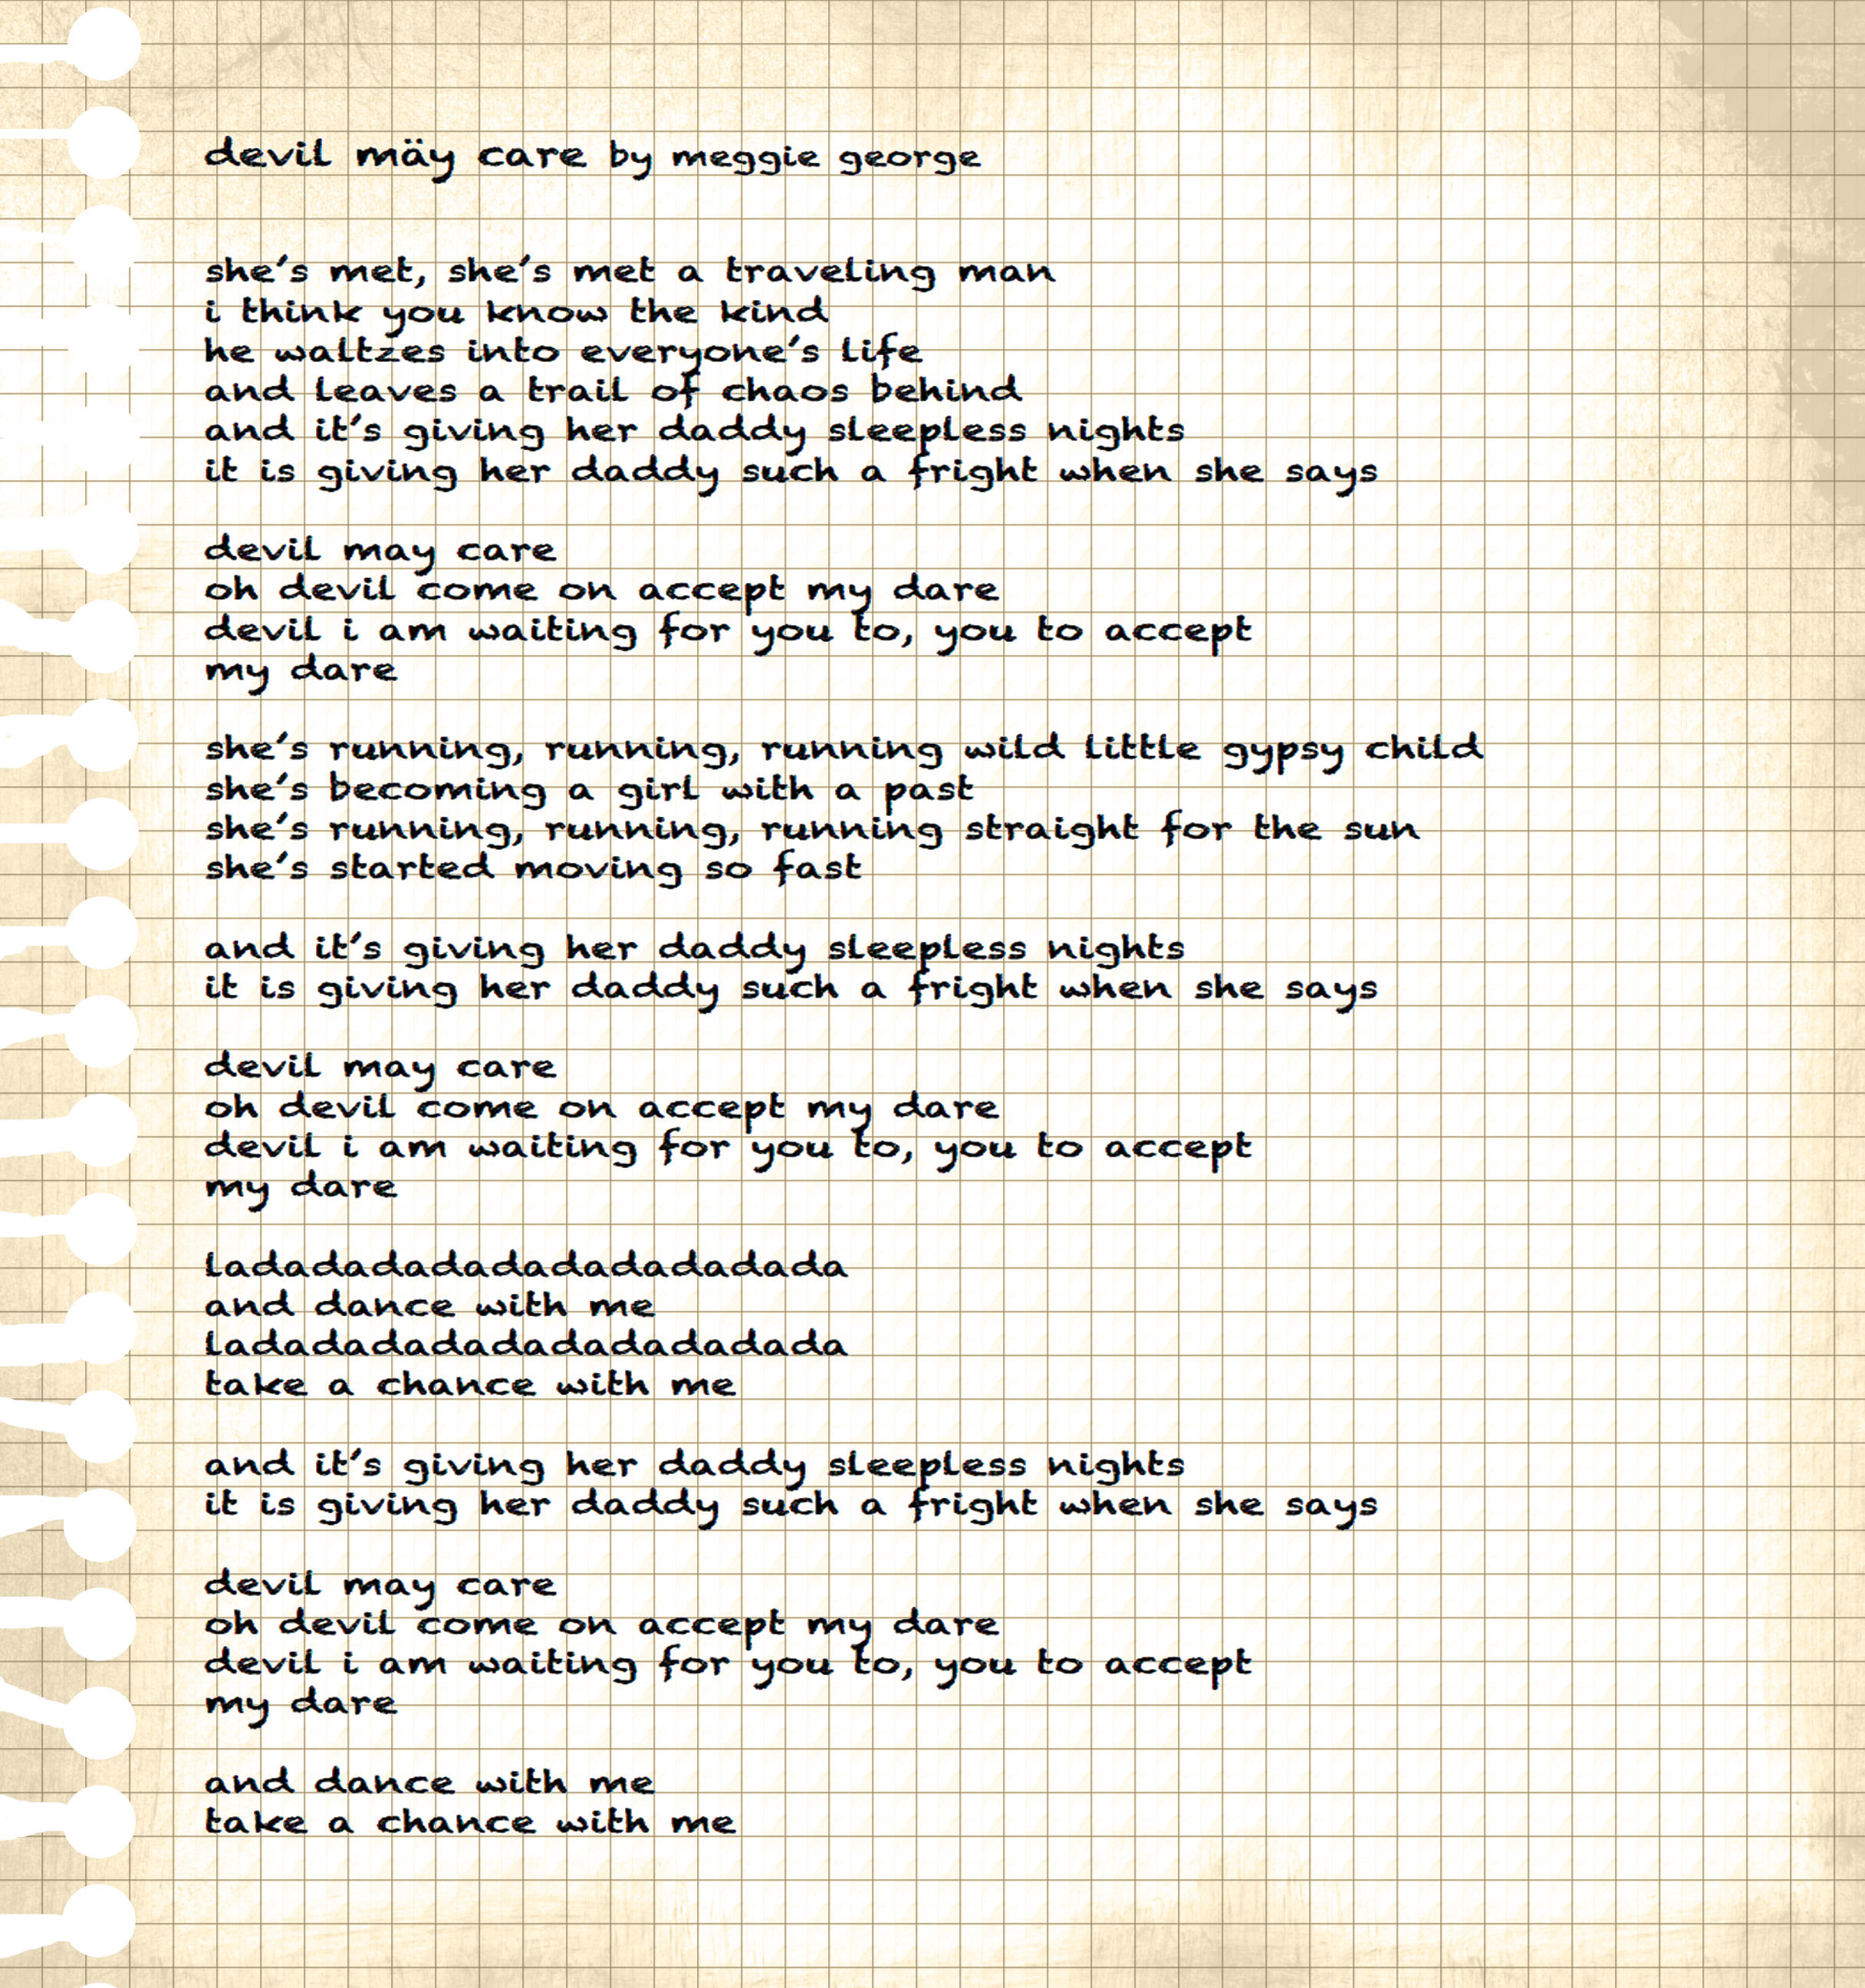 devil mäy care by meggie george
she's met, she's met a traveling man
i think you know the kind
he waltzes into everyone's life
and leaves a trail of chaos behind
and it's giving her daddy sleepless nights
it is giving her daddy such a fright when she says
devil may care
oh devil come on accept my dare
devil i am waiting for you to, you to accept
my dare
she's running, running, running wild little gypsy child
she's becoming a girl with a past
she's running, running, running straight for the sun
she's started moving so fast
and it's giving her daddy sleepless nights
it is giving her daddy such a fright when she says
devil may care
oh devil come on accept my dare
devil i am waiting for you to, you to accept
my dare
ladadadadadadadadadada
and dance with me
ladadadadadadadadadada
take a chance with me
and it's giving her daddy sleepless nights
it is giving her daddy such a fright when she says
devil may care
oh devil come on accept my dare
devil i am waiting for you to, you to accept
my dare
and dance with me
take a chance with me